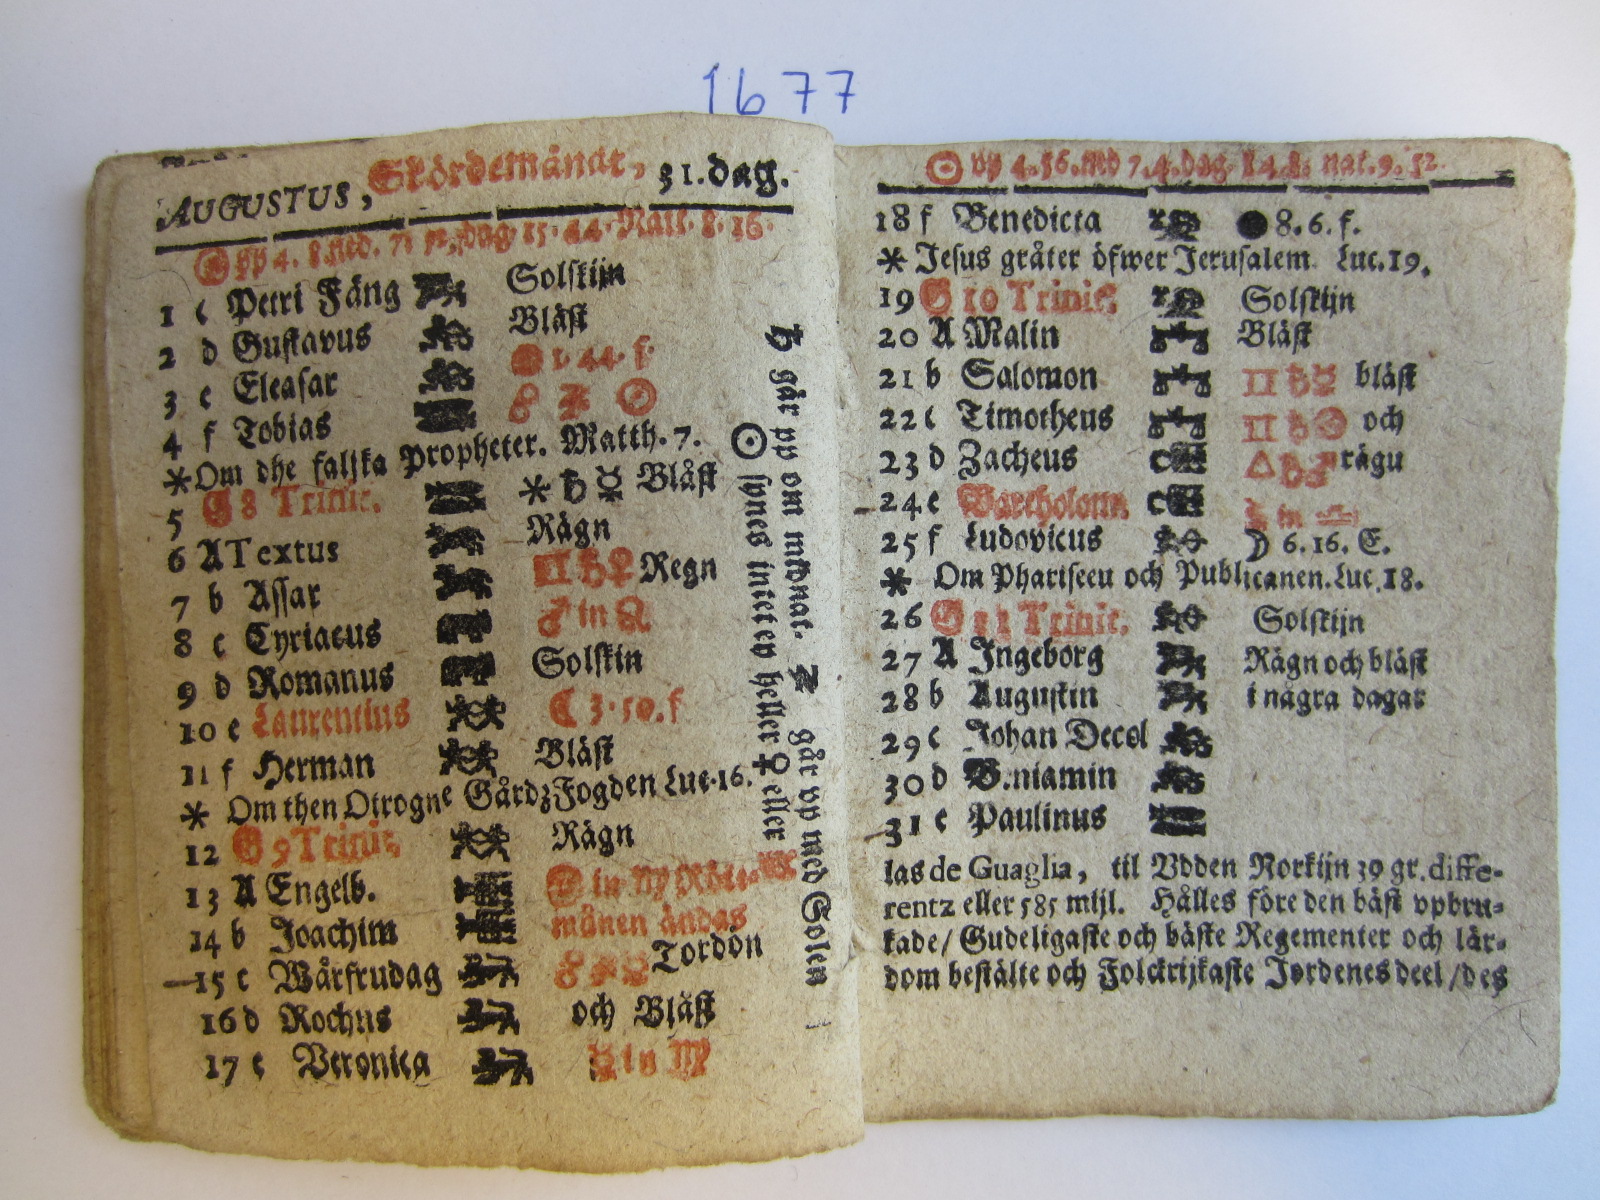 1677
AUGUSTUS, Skördemånat, 31.dag.
☉ vp 4. 8. ned. 7. 52, dag. 15. 44. Natt. 8. 16.
1 c Petri Fäng Solskijn
2 d Gustavus Bläst
3 e Eleasar 1. 44. f.
4 f Tobias ☍ ♃ ☉
* Om dhe falska Propheter. Matth. 7.
5 G 8 Trinit. * ♄ ☿ Blåst
6 A Textus Rägn
7 b Assar ♄ ♀ Regn
8 c Cyriacus ♂ in ♌
9 d Romanus Solskin
10 e Laurentius ☾ 3. 50. f
11 f Herman Bläst
* Om then Otrogne GårdzFogden Luc. 16.
12 G 9 Trinit. Rägn
13 A Engelb. ☉ in ♍ Röte-
14 b Joachim månen ändas
15 c Wårfrudag Tordön
16 d Rochus och Bläst
17 e Veronica ☿ in ♍
♄ går vp om midnat. ♃ går vp med Solen
☉ synes intet ey heller ♀ eller
☉ vp 4. 56. ned 7. 4. dag. 14. 8. nat. 9. 52.
18 f Benedicta ● 8. 6. f.
* Jesus gråter öfwer Jerusalem. Luc. 19.
19 G 10 Trinit. Solskijn
20 A Malin Bläst
21 b Salomon ♄ ☿ bläst
22 c Timotheus ♄ ☉ och
23 d Zacheus △ ♄ ♂ rägn
24 e Bartholom. in ♎
25 f Ludovicus ☽ 6. 16. E.
* Om Phariseen och Publicanen. Luc. 18.
26 G 11 Trinit. Solskijn
27 A Ingeborg Rägn och bläst
28 b Augustin i några dagar
29 c Johan Decol
30 d Beniamin
31 e Paulinus
las de Guaglia, til Vdden Norkijn 39 gr. diffe-
rentz eller 585 mijl. Hålles före den bäst vpbru-
kade/ Gudeligaste och bäste Regementer och lär-
dom bestälte och Folckrijkaste Jordenes deel/ des